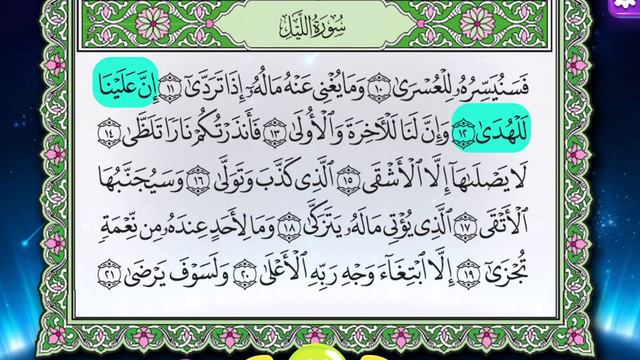 سُورَةُ اللَّيْلِ
فَسَنُيَسِّرُهُۥ لِلْعُسْرَىٰ ١٠ وَمَا يُغْنِى عَنْهُ مَالُهُۥٓ إِذَا تَرَدَّىٰٓ ١١ إِنَّ عَلَيْنَا
لَلْهُدَىٰ ١٢ وَإِنَّ لَنَا لَلْـَٔاخِرَةَ وَٱلْأُولَىٰ ١٣ فَأَنذَرْتُكُمْ نَارًا تَلَظَّىٰ ١٤
لَا يَصْلَىٰهَآ إِلَّا ٱلْأَشْقَى ١٥ ٱلَّذِى كَذَّبَ وَتَوَلَّىٰ ١٦ وَسَيُجَنَّبُهَا
ٱلْأَتْقَى ١٧ ٱلَّذِى يُؤْتِى مَالَهُۥ يَتَزَكَّىٰ ١٨ وَمَا لِأَحَدٍ عِندَهُۥ مِن نِّعْمَةٍ
تُجْزَىٰٓ ١٩ إِلَّا ٱبْتِغَآءَ وَجْهِ رَبِّهِ ٱلْأَعْلَىٰ ٢٠ وَلَسَوْفَ يَرْضَىٰ ٢١